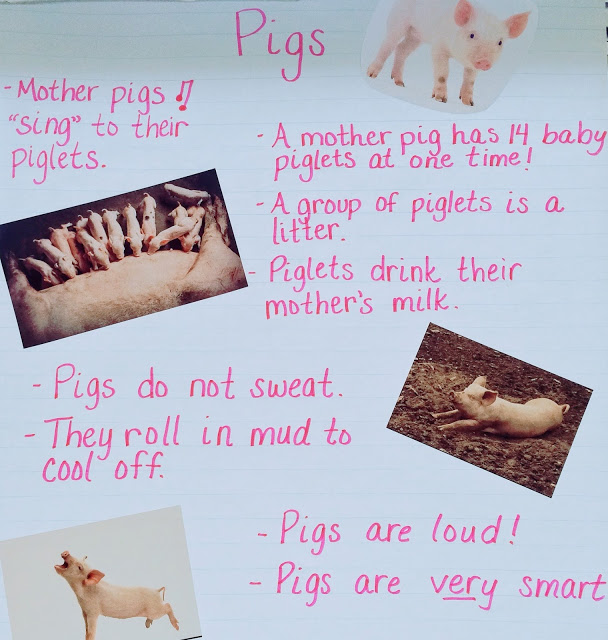 Pigs
- Mother pigs ♫
"sing" to their
piglets.
- A mother pig has 14 baby
piglets at one time!
- A group of piglets is a
litter.
- Piglets drink their
mother's milk.
- Pigs do not sweat.
- They roll in mud to
cool off.
- Pigs are loud!
- Pigs are very smart